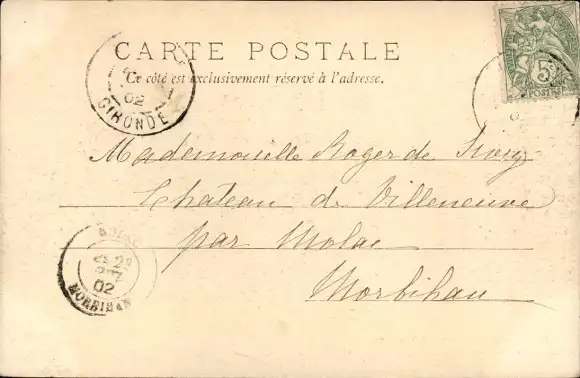 CARTE POSTALE
Ce côté est exclusivement réservé à l'adresse.
02
GIRONDE
5
POSTES
Mademoiselle Roger de
Chateau de Villeneuve
par Molac
Morbihan
02
MORBIHAN